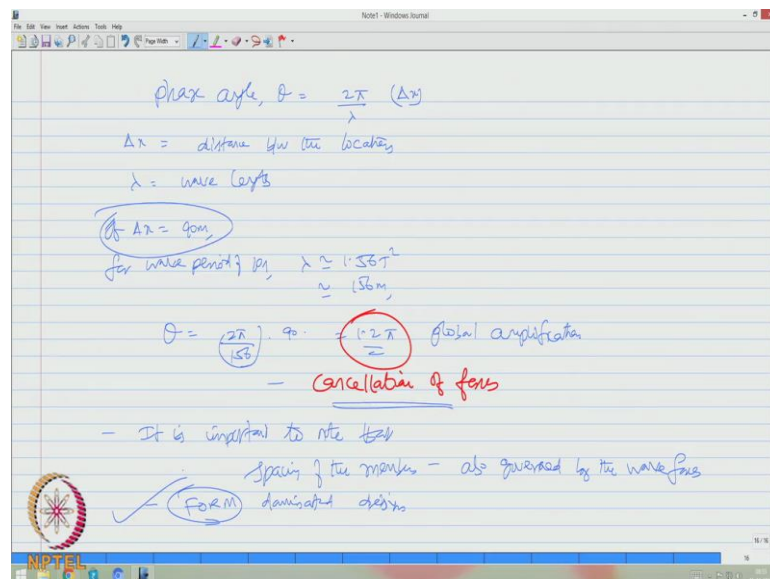 Note1 - Windows Journal
File Edit View Insert Actions Tools Help
Page Width
phase angle, θ = 2π/λ (Δx)
Δx = distance b/w the locations
λ = wave length
If Δx = 90m,
for wave period of 10s, λ ≃ 1.56T²
≃ 156m,
θ = (2π/156) . 90. = 1.2π global amplification
- Cancellation of forces
- It is important to note that
spacing of the members - also governed by the wave forces
- FORM dominated design
NPTEL
16/16
16